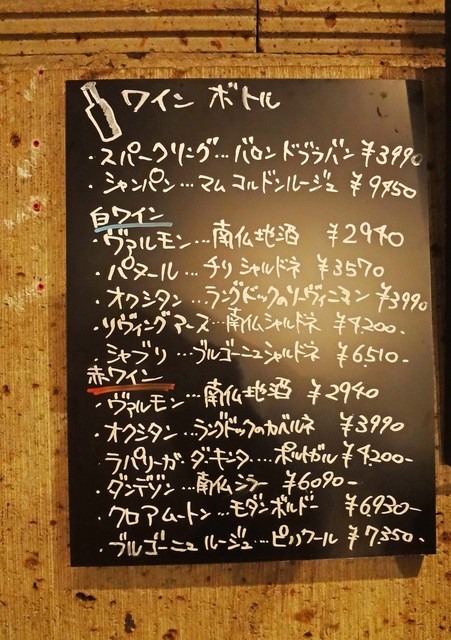 ワイン ボトル
・スパークリング…バロンドブラバン ¥3990
・シャンパン…マム コルドンルージュ ¥9450
白ワイン
・ヴァルモン…南仏地酒 ¥2940
・パタール…チリ シャルドネ ¥3570
・オクシタン…ラングドックのソーヴィニヨン ¥3990
・リヴィングアース…南仏シャルドネ ¥4200-
・シャブリ…ブルゴーニュシャルドネ ¥6510-
赤ワイン
・ヴァルモン…南仏地酒 ¥2940
・オクシタン…ラングドックのカベルネ ¥3990
・ラパリーガ ダ・キンタ…ポルトガル ¥4200-
・ダンデゾン…南仏シラー ¥6090-
・クロアムートン…モダンボルドー ¥6930-
・ブルゴーニュ ルージュ…ピノノワール ¥7350-